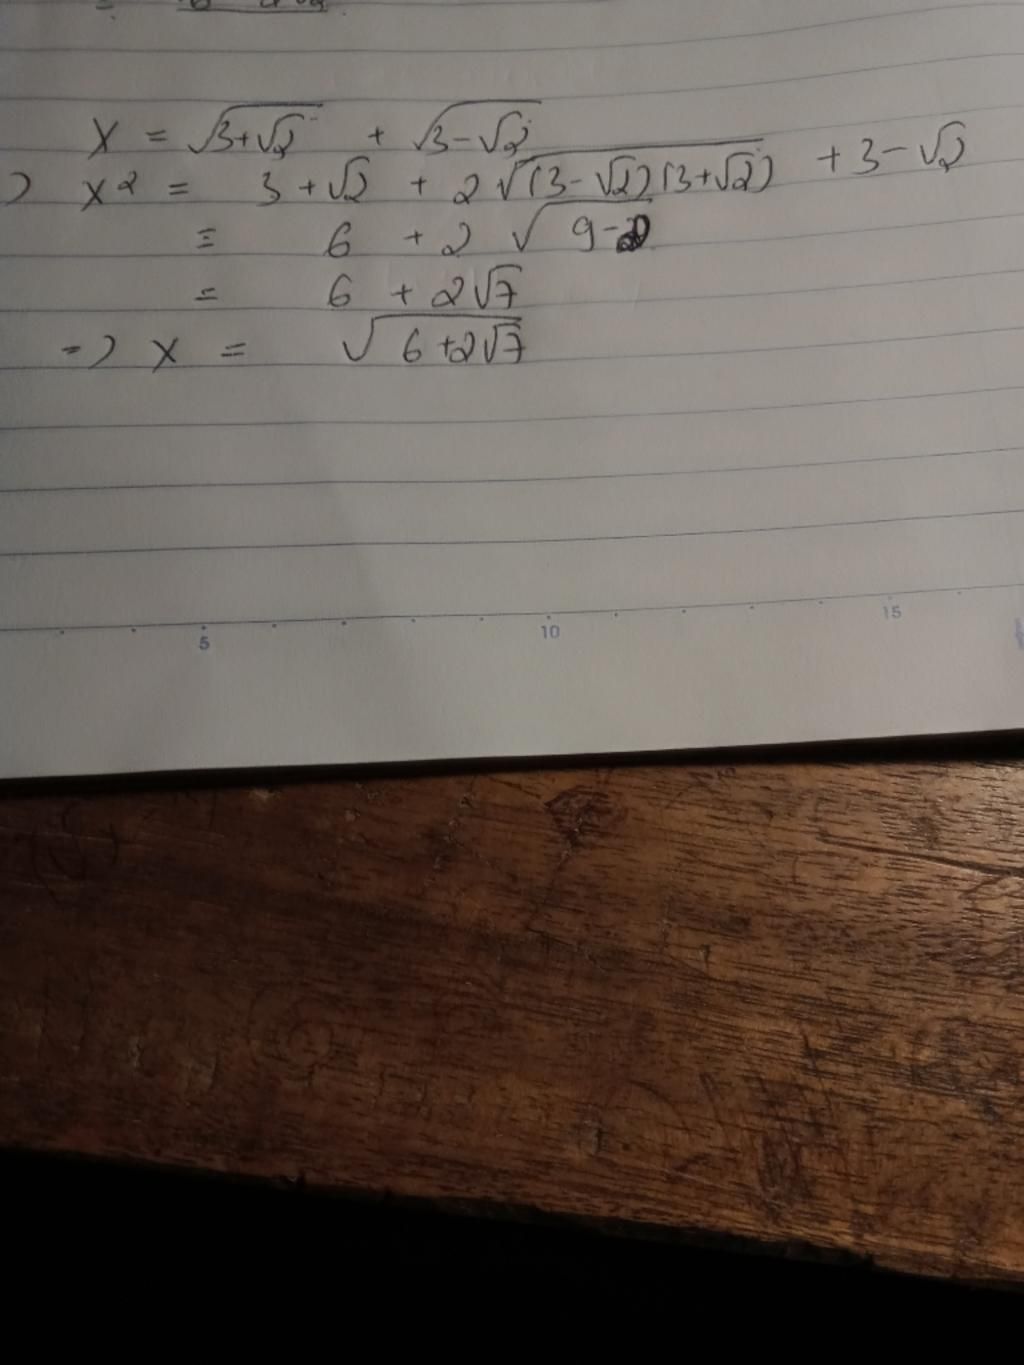 x = √(3+√2) + √(3-√2)
) x² = 3 + √2 + 2√((3-√2)(3+√2)) + 3 - √2
= 6 + 2 √(9-2)
= 6 + 2√7
=) x = √(6+2√7)
5 10 15